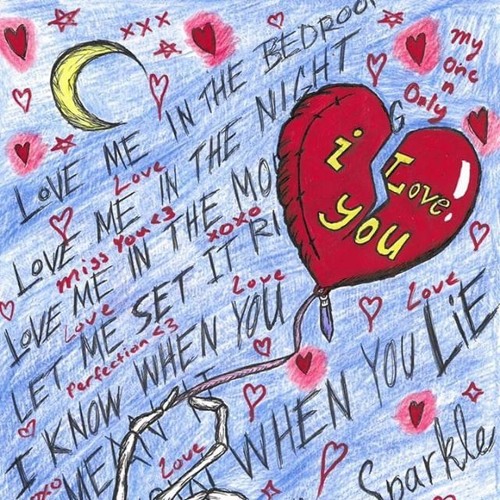 xxx
my
one
n
Only
LOVE ME IN THE BEDROO
LOVE ME IN THE NIGHT
Love
LOVE ME IN THE MO
miss you <3
xoxo
LET ME SET IT RI
Love
Perfection <3
Love
Love
I KNOW WHEN YOU
MEAN
WHEN YOU LiE
xo
Love
Sparkle
i Love
you
G